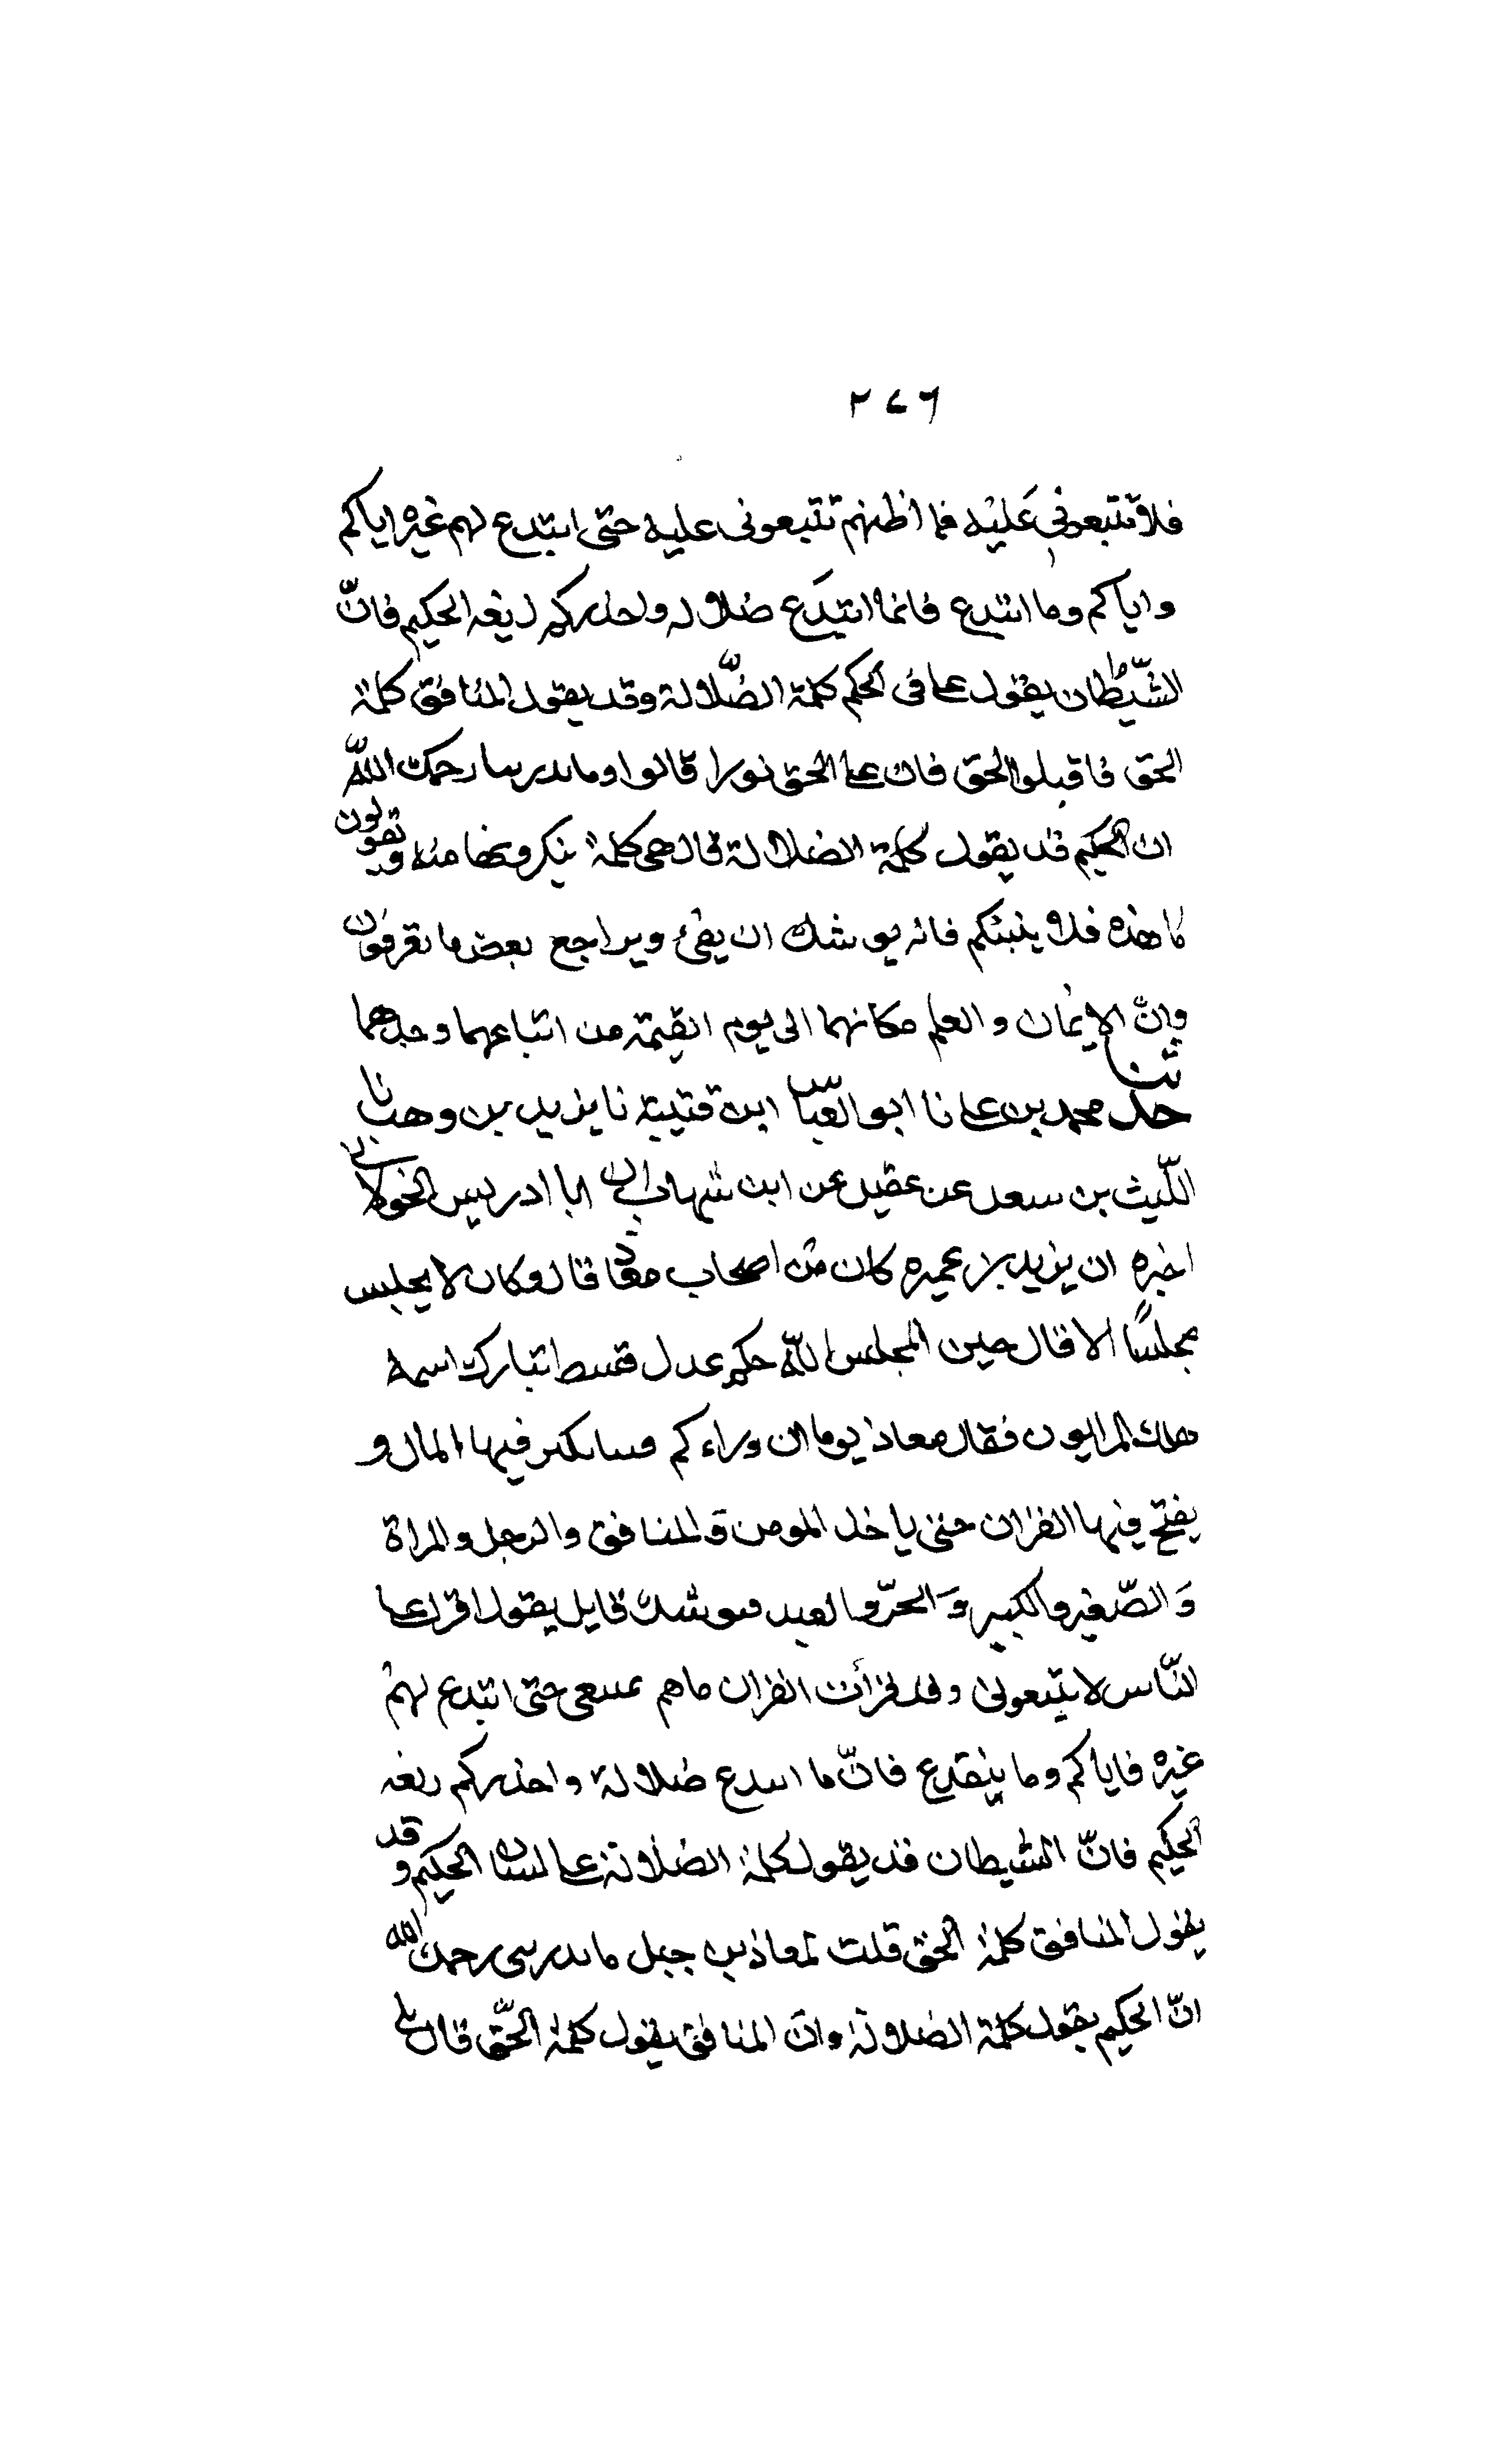 ٢٧٦
فلا تتبعوني عليه فما اظنهم تتبعونى عليه حتى ابتدع لهم غيره اياكم
واياكم وما ابتدع فانما ابتدع ضلاله واحذركم زيغه الحكيم فانّ
الشّيطان يقول على فى الحكم كلمة الضّلالة وقد يقول المنافق كلمة
الحق فاقبلوا الحق فان على الحق نورا قالوا وما يدرينا رحمك اللّه
ان الحكيم قد يقول كلمة الضلالة قال هى كلمة ينكرونها منه ويقولون
ما هذه فلا يثنيكم فانه يوشك ان يفئ ويراجع بعض ما تعرفون
وانّ الايمان والعلم مكانهما الى يوم القيمة من ابتاعهما وجدهما
حدثنا محمد بن على نا ابو العبّاس ابن قتيبة نا يزيد بن وهب نا
اللّيث بن سعد عن عقيل عن ابن شهاب ان ابا ادريس الخولانى
اخبره ان يزيد بن عميره كان من اصحاب معاذ قال وكان لا يجلس
مجلسًا الا قال حين المجلس اللّه حكم عدل قسط تبارك اسمه
هلك المرايون فقال معاذ يوما ان وراءكم فتنا يكثر فيها المال و
يفتح فيها القران حتى ياخذ المومن والمنافق والرجل والمراة
وَالصّغير والكبير وَالحرّ والعبد فيوشك قايل يقول اقرا على
النّاس لا يتبعونى وقد قرأت القران ماهم بمتبعى حتى ابتدع لهم
غيره فاياكم وما يبتدع فانّ ما ابتدع ضلالة واحذركم زيغه
الحكيم فانّ الشيطان قد يقول كلمة الضلالة على لسان الحكيم وقد
يقول المنافق كلمة الحق قلت لمعاذ بن جبل ما يدرينى رحمك اللّه
انّ الحكيم يقول كلمة الضلالة وان المنافق يقول كلمة الحّق قال بلى